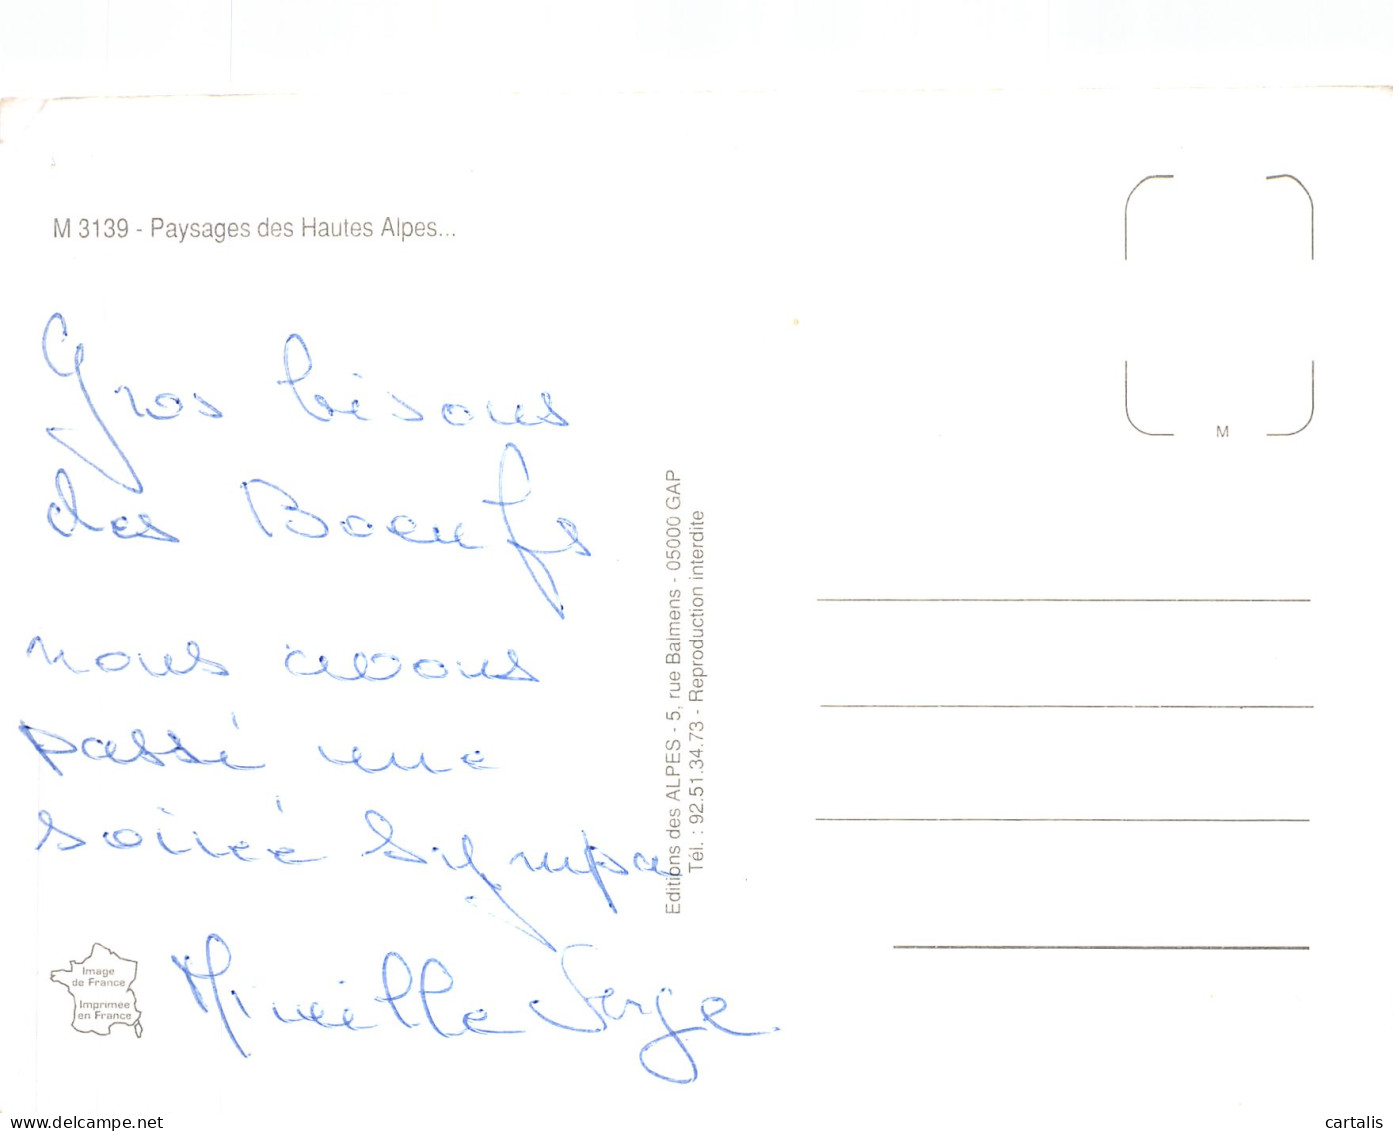 M 3139 - Paysages des Hautes Alpes...
Gros bisous
des Boeufs
nous avons
passé une
soirée sympa
Mireille Serge
Image
de France
Imprimée
en France
Editions des ALPES - 5, rue Balmens - 05000 GAP
Tél. : 92.51.34.73 - Reproduction interdite
M
www.delcampe.net
cartalis